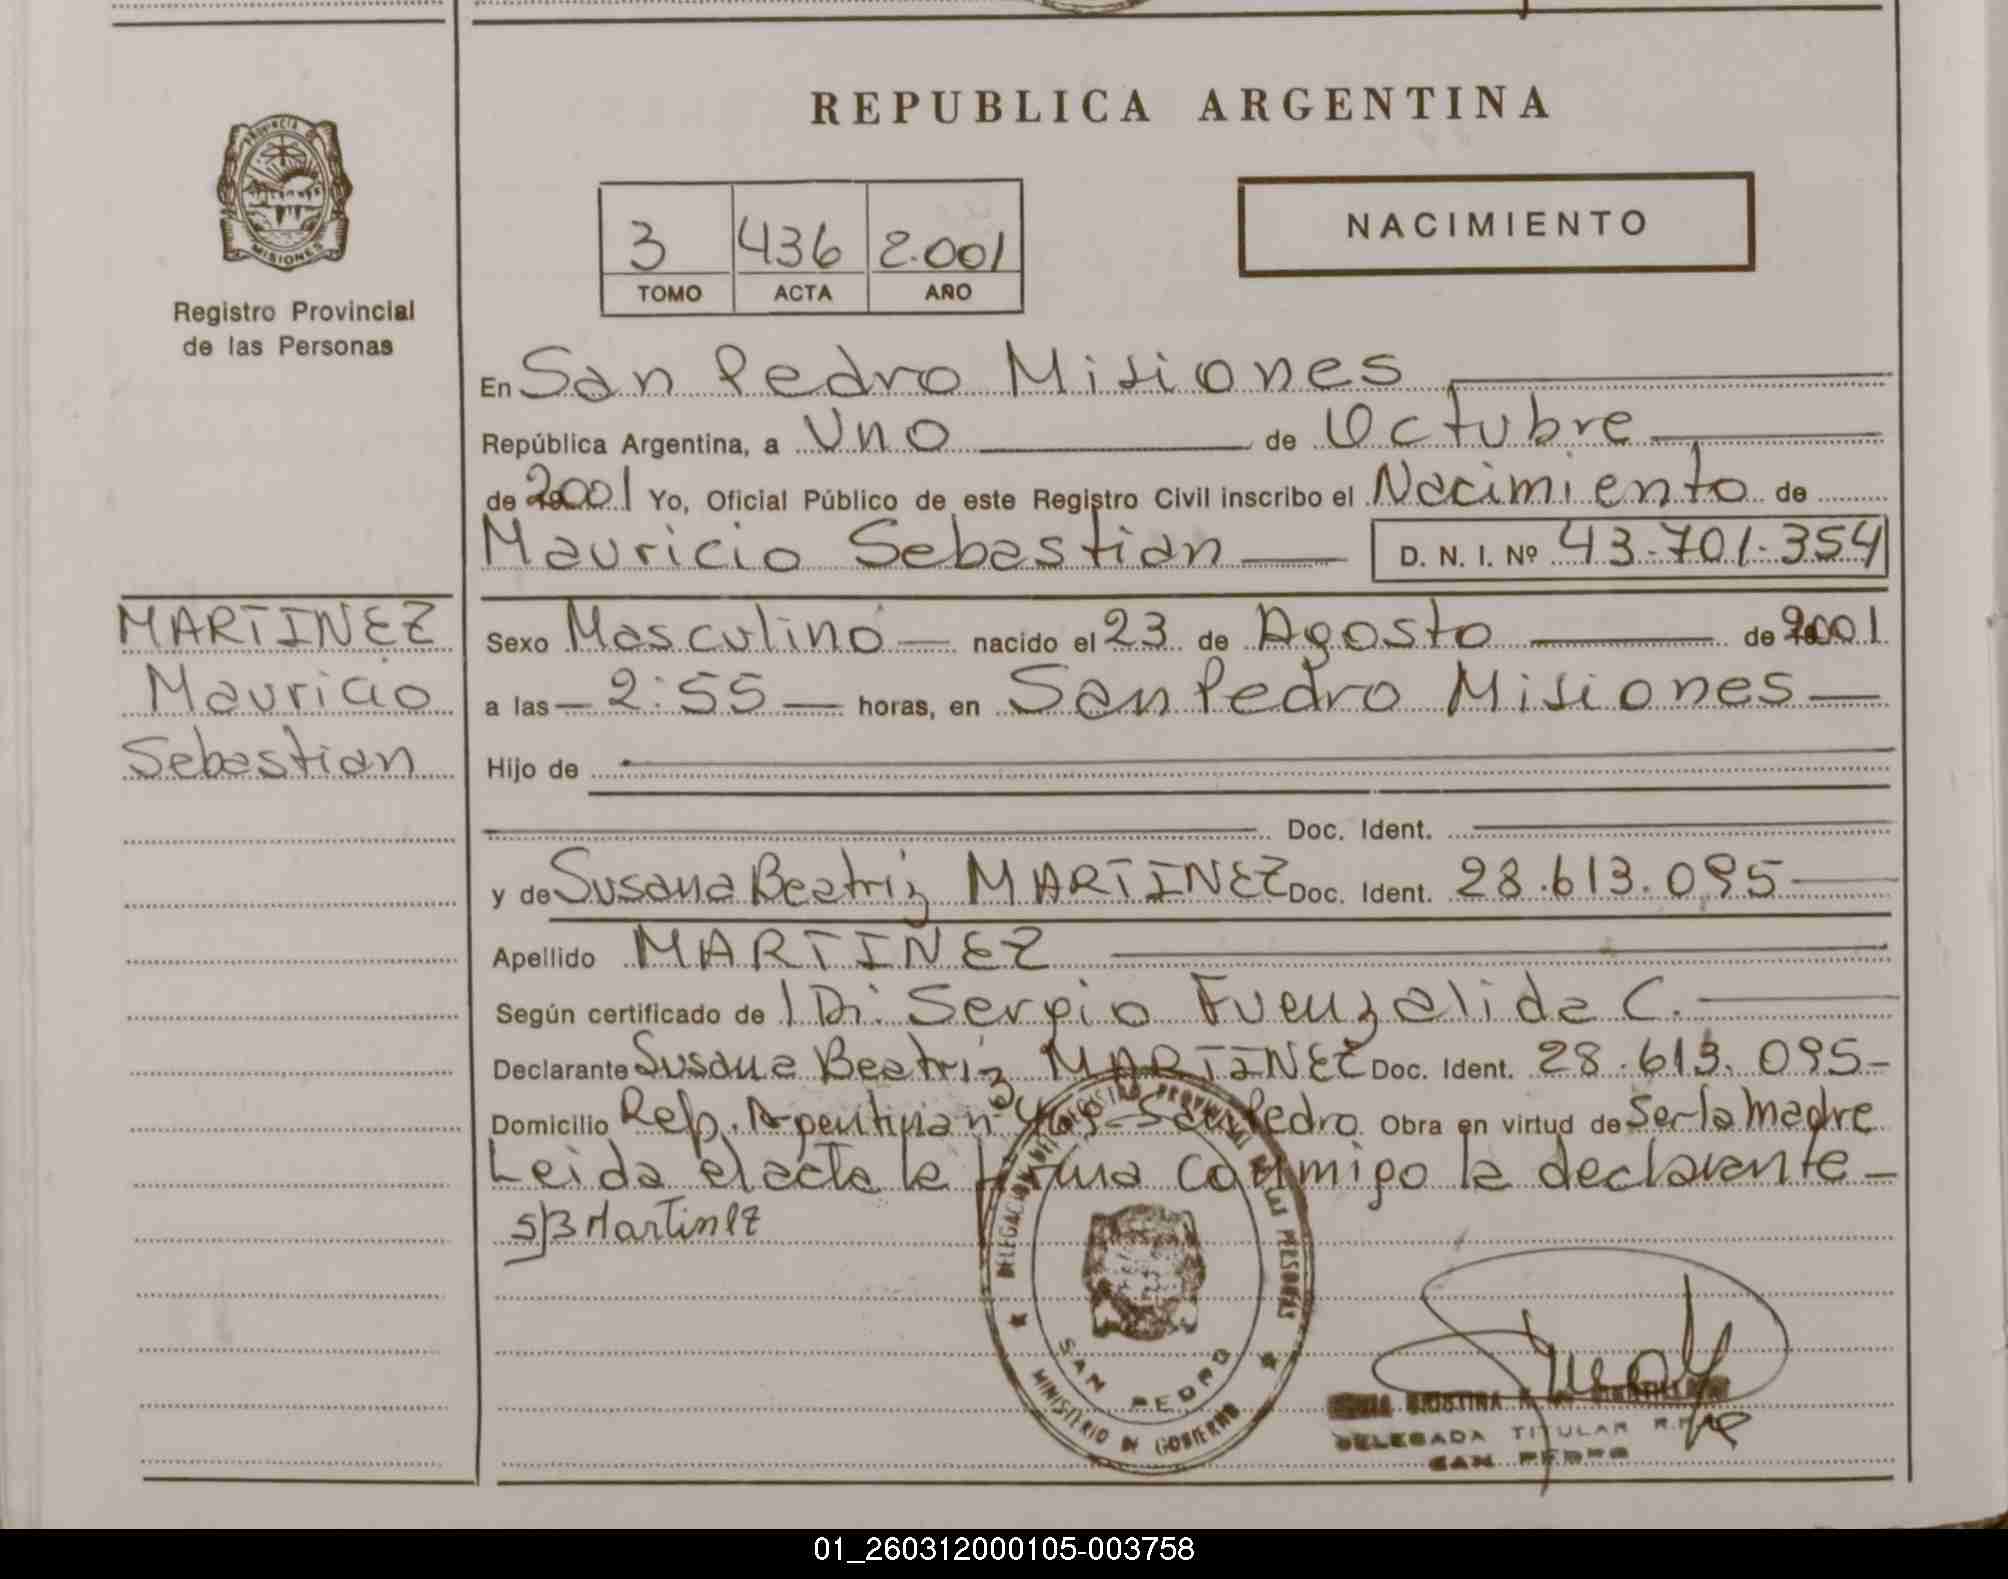 REPUBLICA ARGENTINA
PROVINCIA DE
MISIONES
Registro Provincial
de las Personas
3 436 2.001
TOMO ACTA AÑO
NACIMIENTO
En San Pedro Misiones
República Argentina, a Uno de Octubre
de 2001 Yo, Oficial Público de este Registro Civil inscribo el Nacimiento de
Mauricio Sebastian D. N. I. Nº 43.701.354
MARTINEZ
Mauricio
Sebastian
Sexo Masculino nacido el 23 de Agosto de 2001
a las 2:55 horas, en San Pedro Misiones
Hijo de
Doc. Ident.
y de Susana Beatriz MARTINEZ Doc. Ident. 28.613.095
Apellido MARTINEZ
Según certificado de Dr. Sergio Fuenzalida C.
Declarante Susana Beatriz MARTINEZ Doc. Ident. 28.613.095
Domicilio Rep. Argentina nº San Pedro Obra en virtud de Ser la madre
Leida el acta la firma conmigo la declarante
SB Martinez
DELEGACION REGISTRO PROVINCIAL DE LAS PERSONAS
SAN PEDRO
MINISTERIO DE GOBIERNO
CRISTINA
DELEGADA TITULAR
SAN PEDRO
01_260312000105-003758